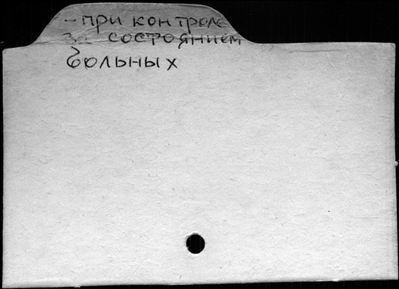 - при контроле
за состоянием
больных